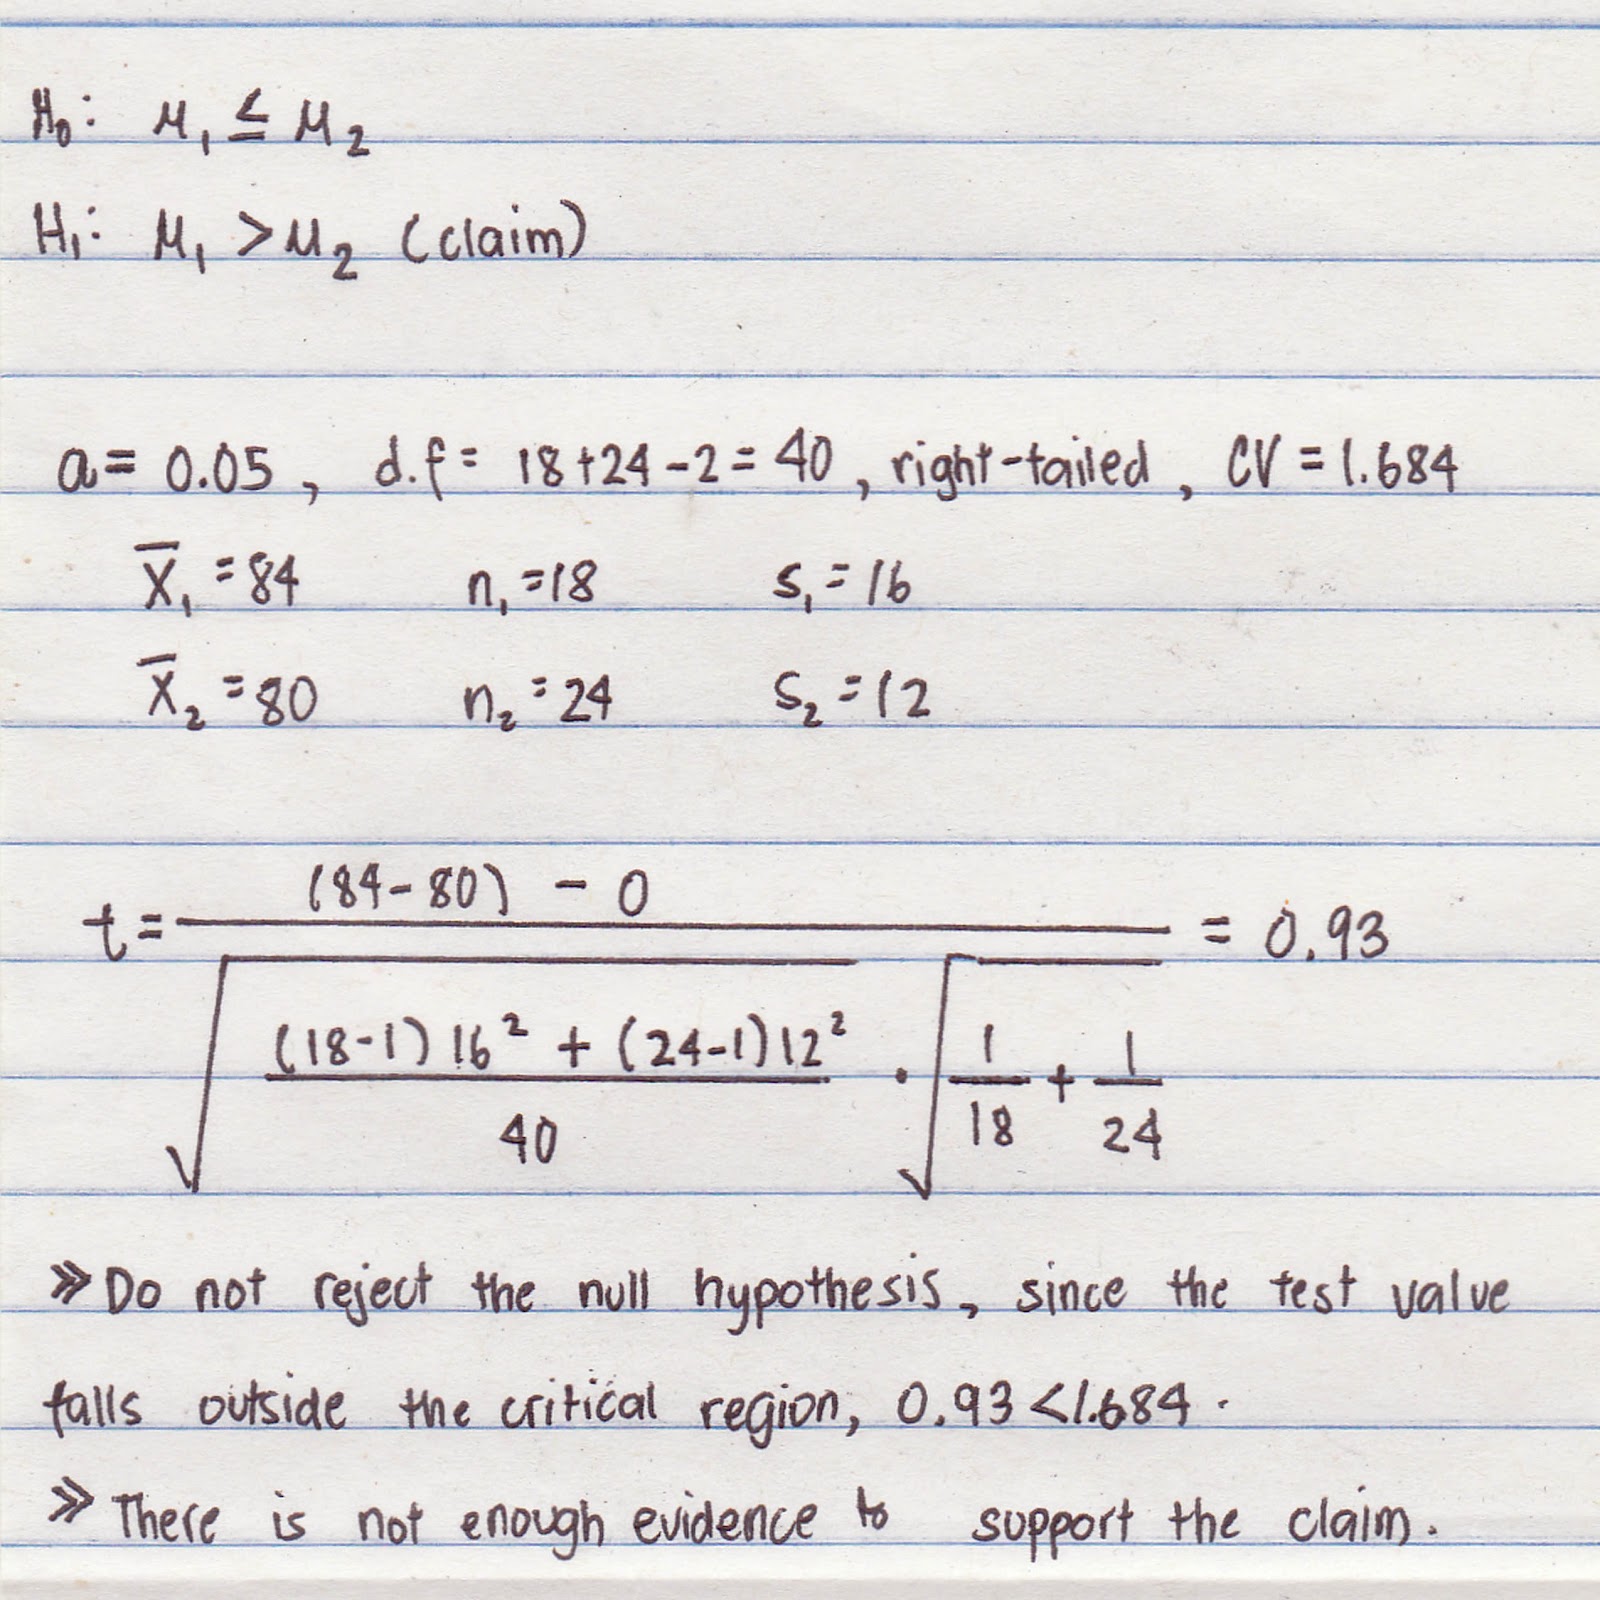 H₀: μ₁ ≤ μ₂
H₁: μ₁ > μ₂ (claim)
a = 0.05, d.f = 18+24-2 = 40, right-tailed, CV = 1.684
X̅₁ = 84 n₁ = 18 s₁ = 16
X̅₂ = 80 n₂ = 24 s₂ = 12
(84-80) - 0
t = = 0.93
√ (18-1) 16² + (24-1) 12² · √ 1 + 1
40 18 24
≫ Do not reject the null hypothesis, since the test value
falls outside the critical region, 0.93 < 1.684.
≫ There is not enough evidence to support the claim.